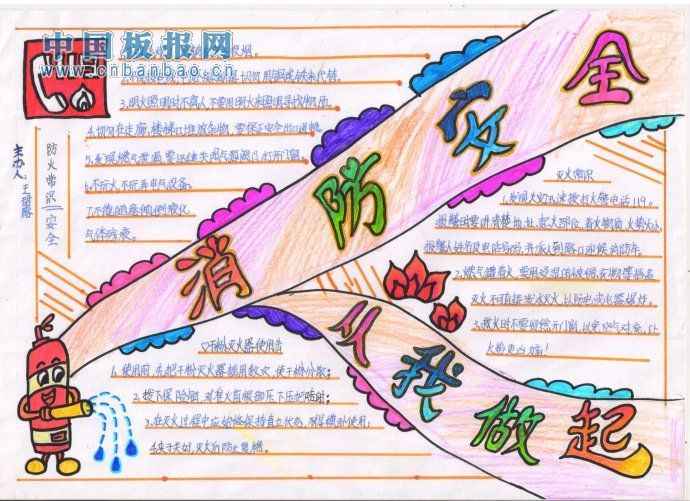 中国板报网
www.cnbanbao.cn
主办人
防火常识——安全
3.明火照明时不离人,不要用明火来照明寻找物品。
4.切勿在走廊、楼梯口堆放杂物,要保证安全出口通畅。
5.发现燃气泄漏,要迅速关闭气源阀门,打开门窗。
6.不玩火、不玩弄电气设备。
7.不能随意倾倒液化
气体残液。
消防安全
从我做起
灭火常识
1.发现火灾迅速拨打火警电话119。
报警时要讲清楚地址、起火部位、着火物质、火势大小、
报警人姓名及电话号码,并派人到路口迎候消防车。
2.燃气罐着火,要用浸湿的被褥、衣物等捂盖
灭火不可直接泼水灭火,以防电或电器爆炸。
3.救火时不要贸然开门窗,以免空气对流,让
火势更凶猛!
干粉灭火器使用法
1.使用前,先把干粉灭火器摇用数次,使干粉分散;
2.拔下保险销,对准火苗根部压下压把喷射;
3.在灭火过程中应始终保持直立状态,不得横卧使用;
灭火后防止复燃。